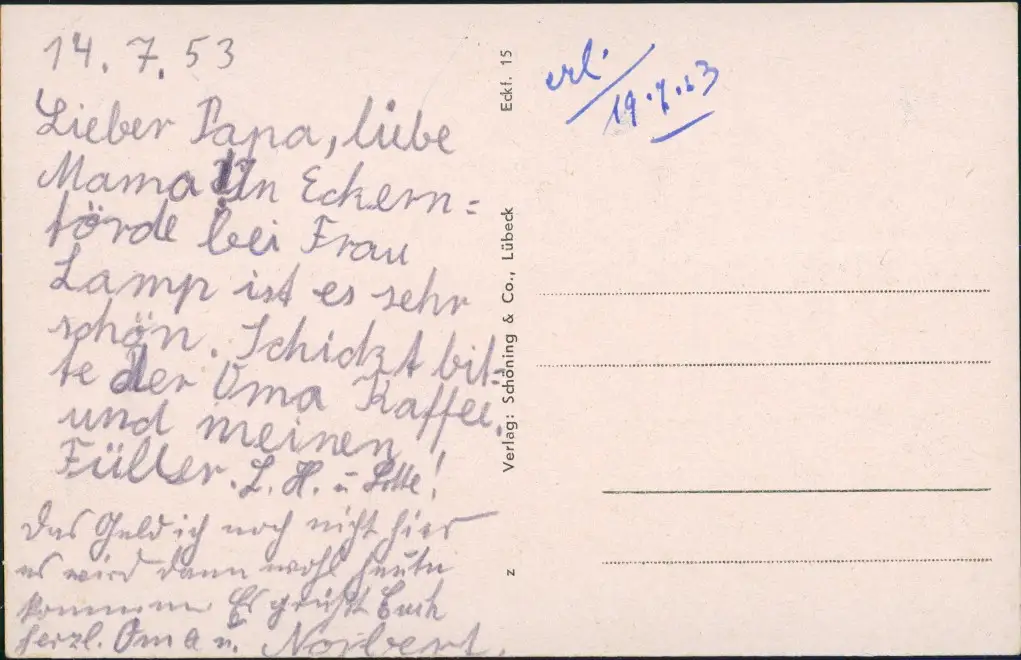 14.7.53
Lieber Papa, liebe
Mama! In Eckern=
förde bei Frau
Lamp ist es sehr
schön. Schickt bit=
te der Oma Kaffee,
und meinen
Füller. L. H. u. Lotte!
Das Geld ist noch nicht hier
es wird dann wohl heute
kommen. Es grüßt Euch
herzl. Oma u. Norbert.
Eckf. 15
Verlag: Schöning & Co., Lübeck
z
erl.
19.7.53